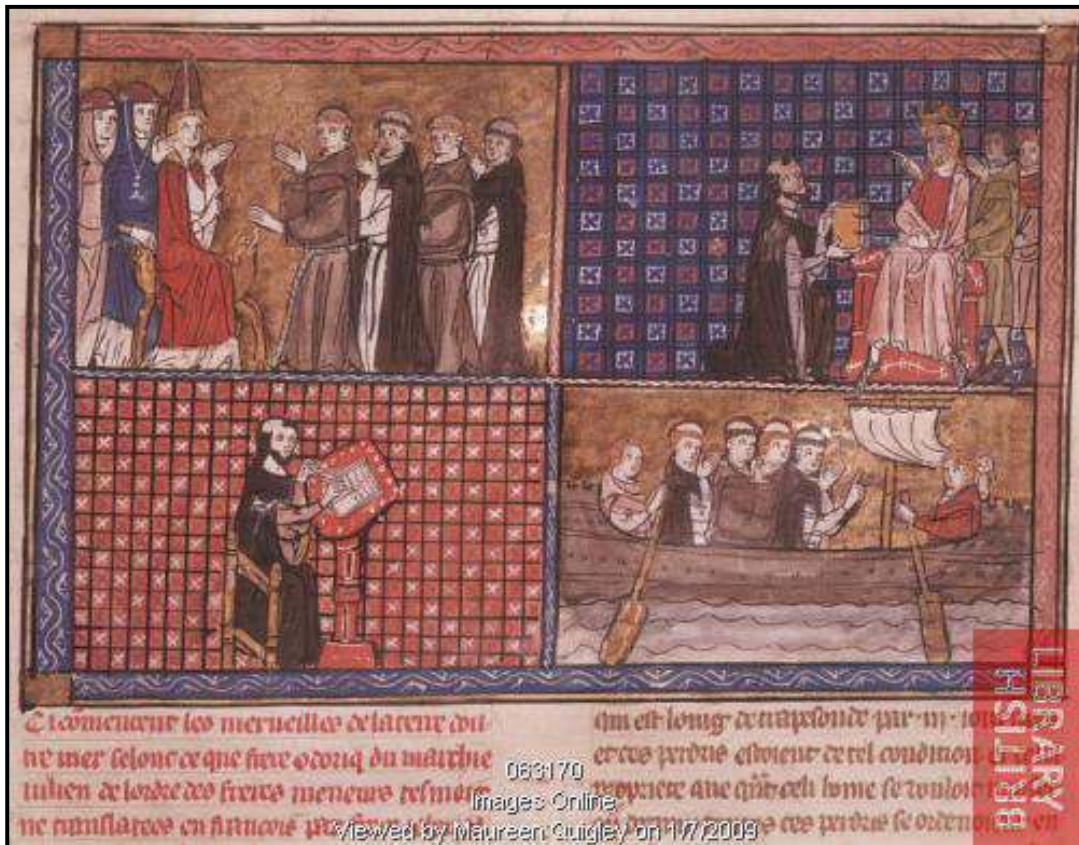 Ci cõmencent les merueilles de la terre dou
tre mer selonc ce que frere odoriq du marchie
iulien de lordre des freres meneurs tesmoig
ne translatees en francois par
qui est loing de trapesonde par
et ces perdris estoient de tel condicion
propriete que q̃nt celi home se vouloit
ces perdris se ordenoient en
063170
Images Online
Viewed by Maureen Quigley on 1/7/2009
BRITISH
LIBRARY